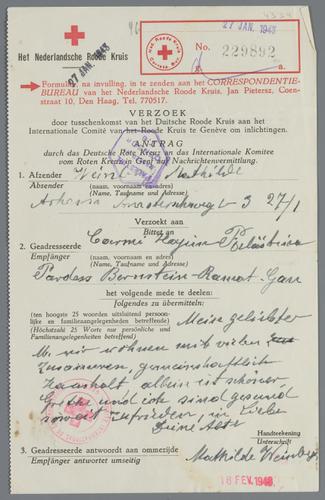 27 JAN. 1943
No. 229892
Het Nederlandsche Roode Kruis
27 JAN. 1943
Formulier na invulling, in te zenden aan het CORRESPONDENTIE-
BUREAU van het Nederlandsche Roode Kruis, Jan Pietersz. Coen-
straat 10, Den Haag, Tel. 770517.
VERZOEK
door tusschenkomst van het Duitsche Roode Kruis aan het
Internationale Comité van het Roode Kruis te Genève om inlichtingen.
ANTRAG
durch das Deutsche Rote Kreuz an das Internationale Komitee
vom Roten Kreuz in Genf auf Nachrichtenvermittlung.
1. Afzender Mathilde
Absender (naam, voornaam en adres)
(Name, Taufname und Adresse)
3 27/1
Verzoekt aan
Bittet an
2. Geadresseerde Carmi Hayim
Empfänger (naam, voornaam en adres)
(Name, Taufname und Adresse)
Pardess Bernstein-Ramat-Gan
het volgende mede te deelen:
Folgendes zu übermitteln:
(ten hoogste 25 woorden uitsluitend persoon-
lijke en familieaangelegenheden betreffende)
(Höchstzahl 25 Worte nur persönliche und
Familienangelegenheiten betreffend) Mein geliebter
M. wir wohnen mit vielen
zusammen, gemeinschaftlich
Haushalt allein ist schöner
und ich sind gesund
soweit zufrieden, in Liebe
Deine Alte
Handteekening
Unterschrift
3. Geadresseerde antwoordt aan ommezijde
Empfänger antwortet umseitig
Mathilde
18 FEV. 1943